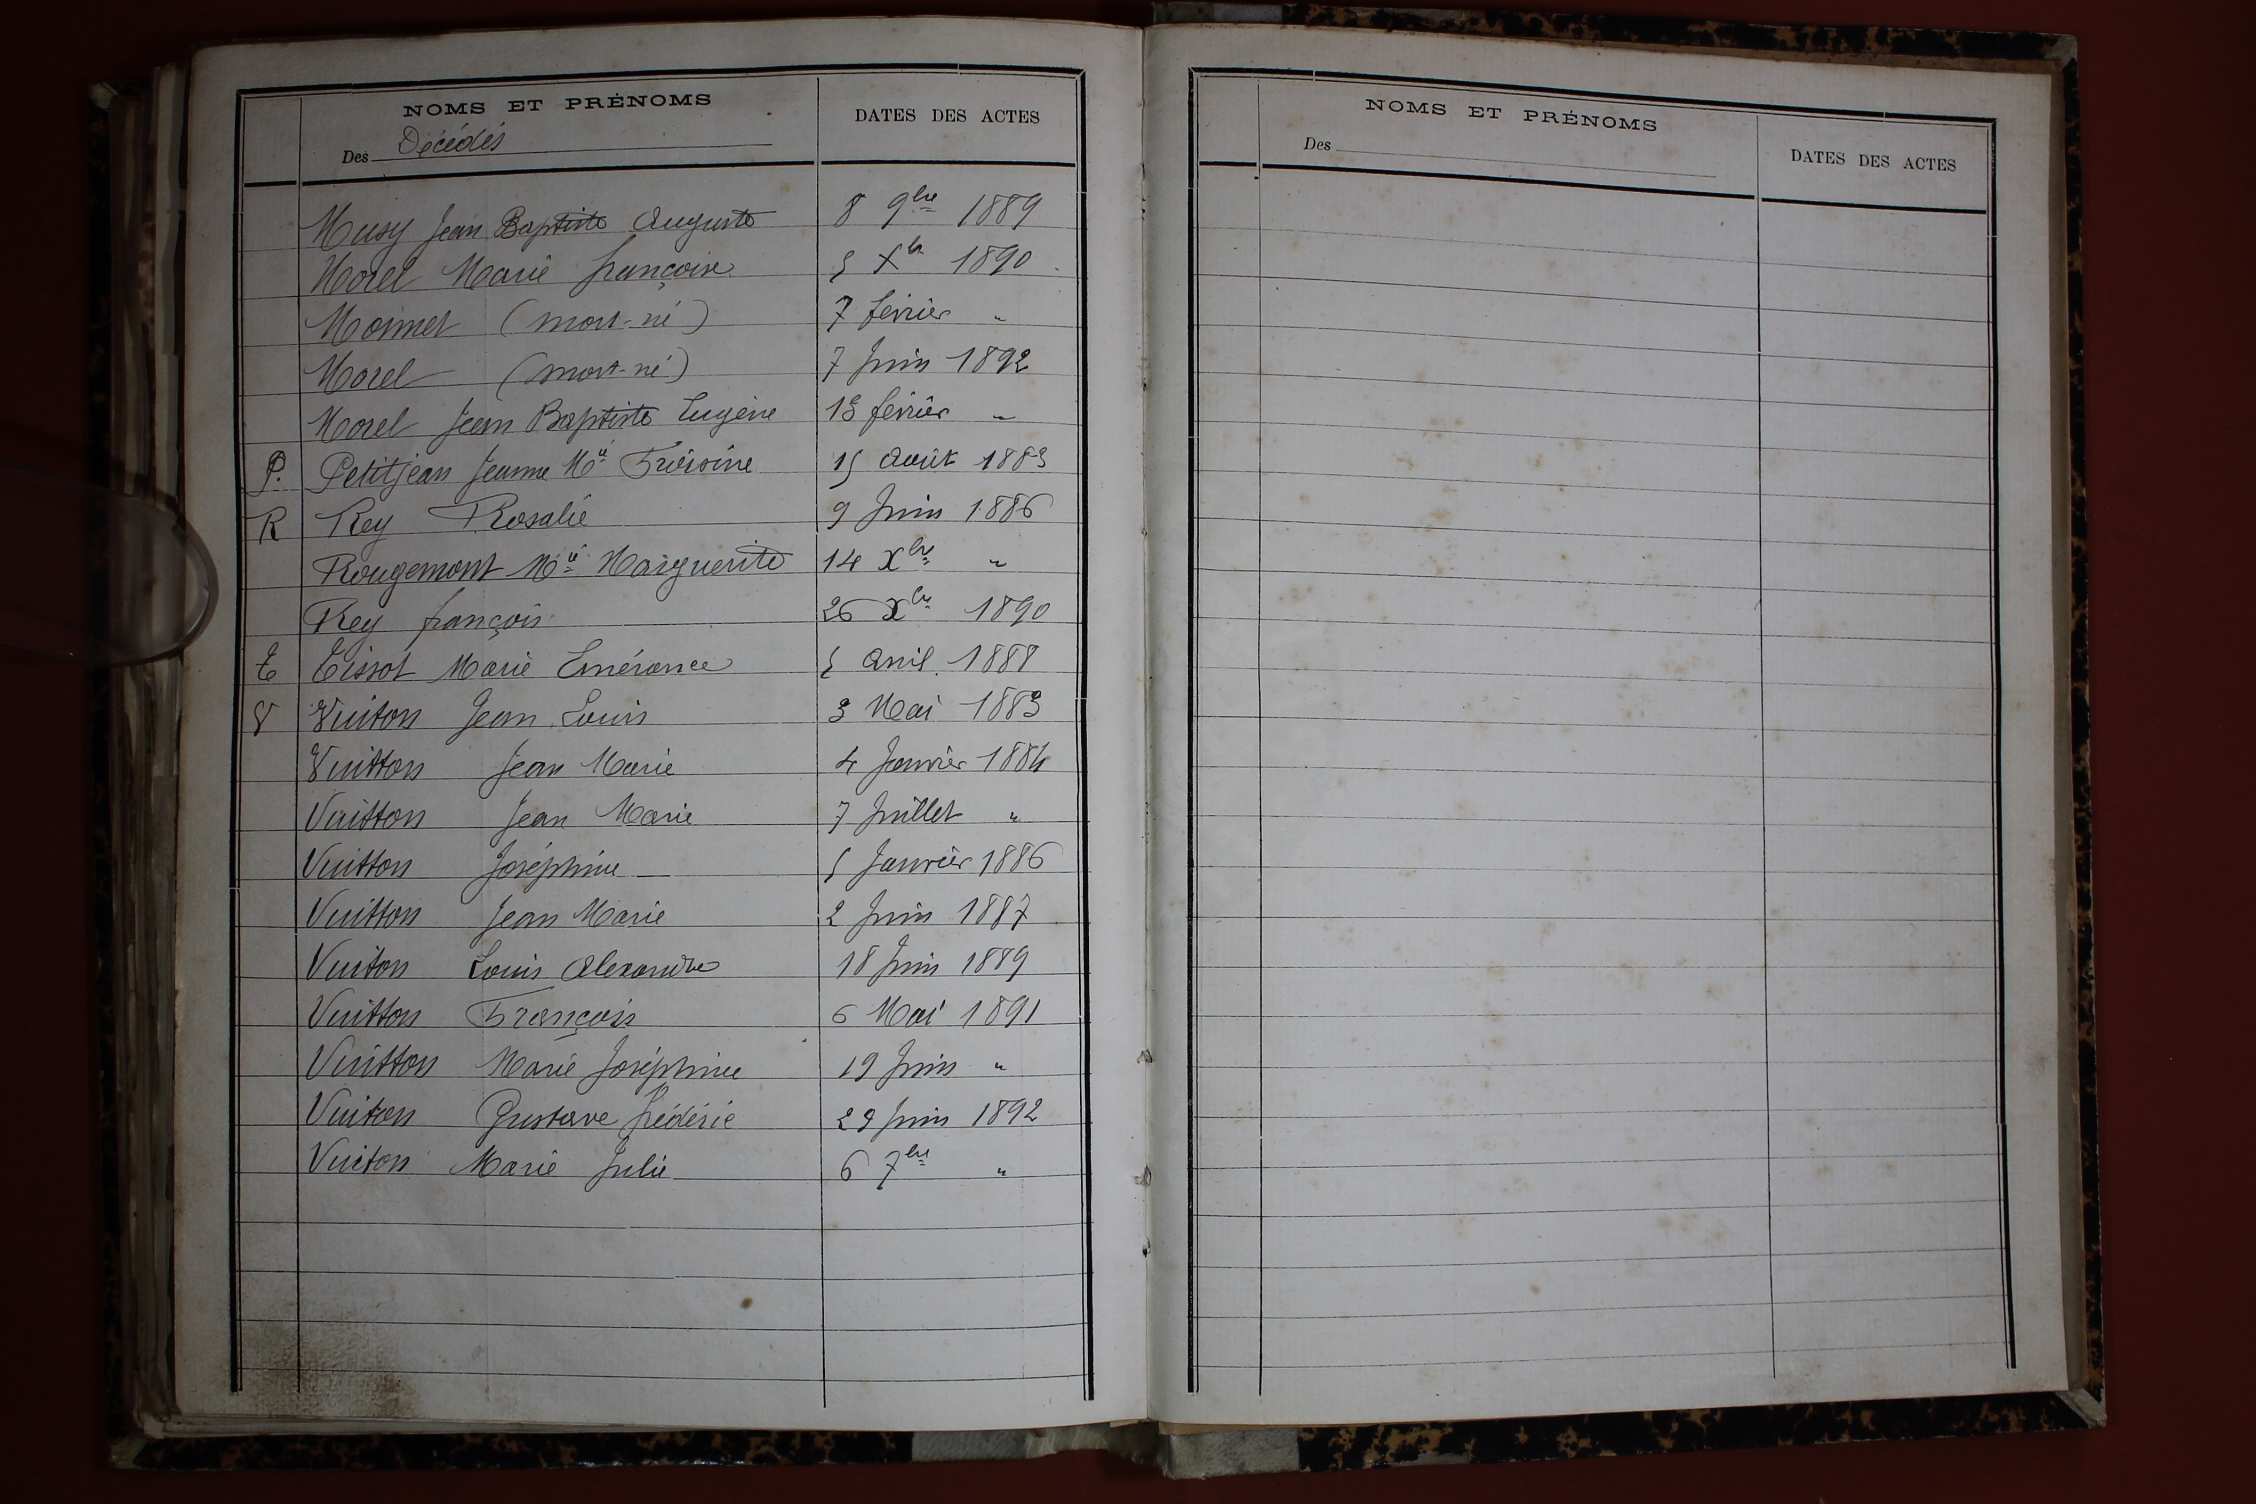 NOMS ET PRÉNOMS
Des Décédés
DATES DES ACTES
Musy Jean Baptiste Auguste 8 9bre 1889
Morel Marie françoise 5 Xbre 1890
Moinet (mort-né) 7 février "
Morel (mort-né) 7 Juin 1892
Morel Jean Baptiste Eugène 13 février "
P. Petitjean Jeanne Mie 15 Août 1883
R Rey Rosalie 9 Juin 1886
Rougemont Mie Marguerite 14 Xbre "
Rey françois 26 Xbre 1890
T Tissot Marie Emérance 5 Avril 1888
V Vuiton Jean Louis 3 Mai 1883
Vuitton Jean Marie 4 Janvier 1884
Vuitton Jean Marie 7 Juillet "
Vuitton Joséphine 5 Janvier 1886
Vuitton Jean Marie 2 Juin 1887
Vuiton Louis Alexandre 18 Juin 1889
Vuitton François 6 Mai 1891
Vuitton Marie Joséphine 19 Juin "
Vuiton Gustave frédéric 29 Juin 1892
Vuiton Marie Julie 6 7bre "
NOMS ET PRÉNOMS
Des
DATES DES ACTES